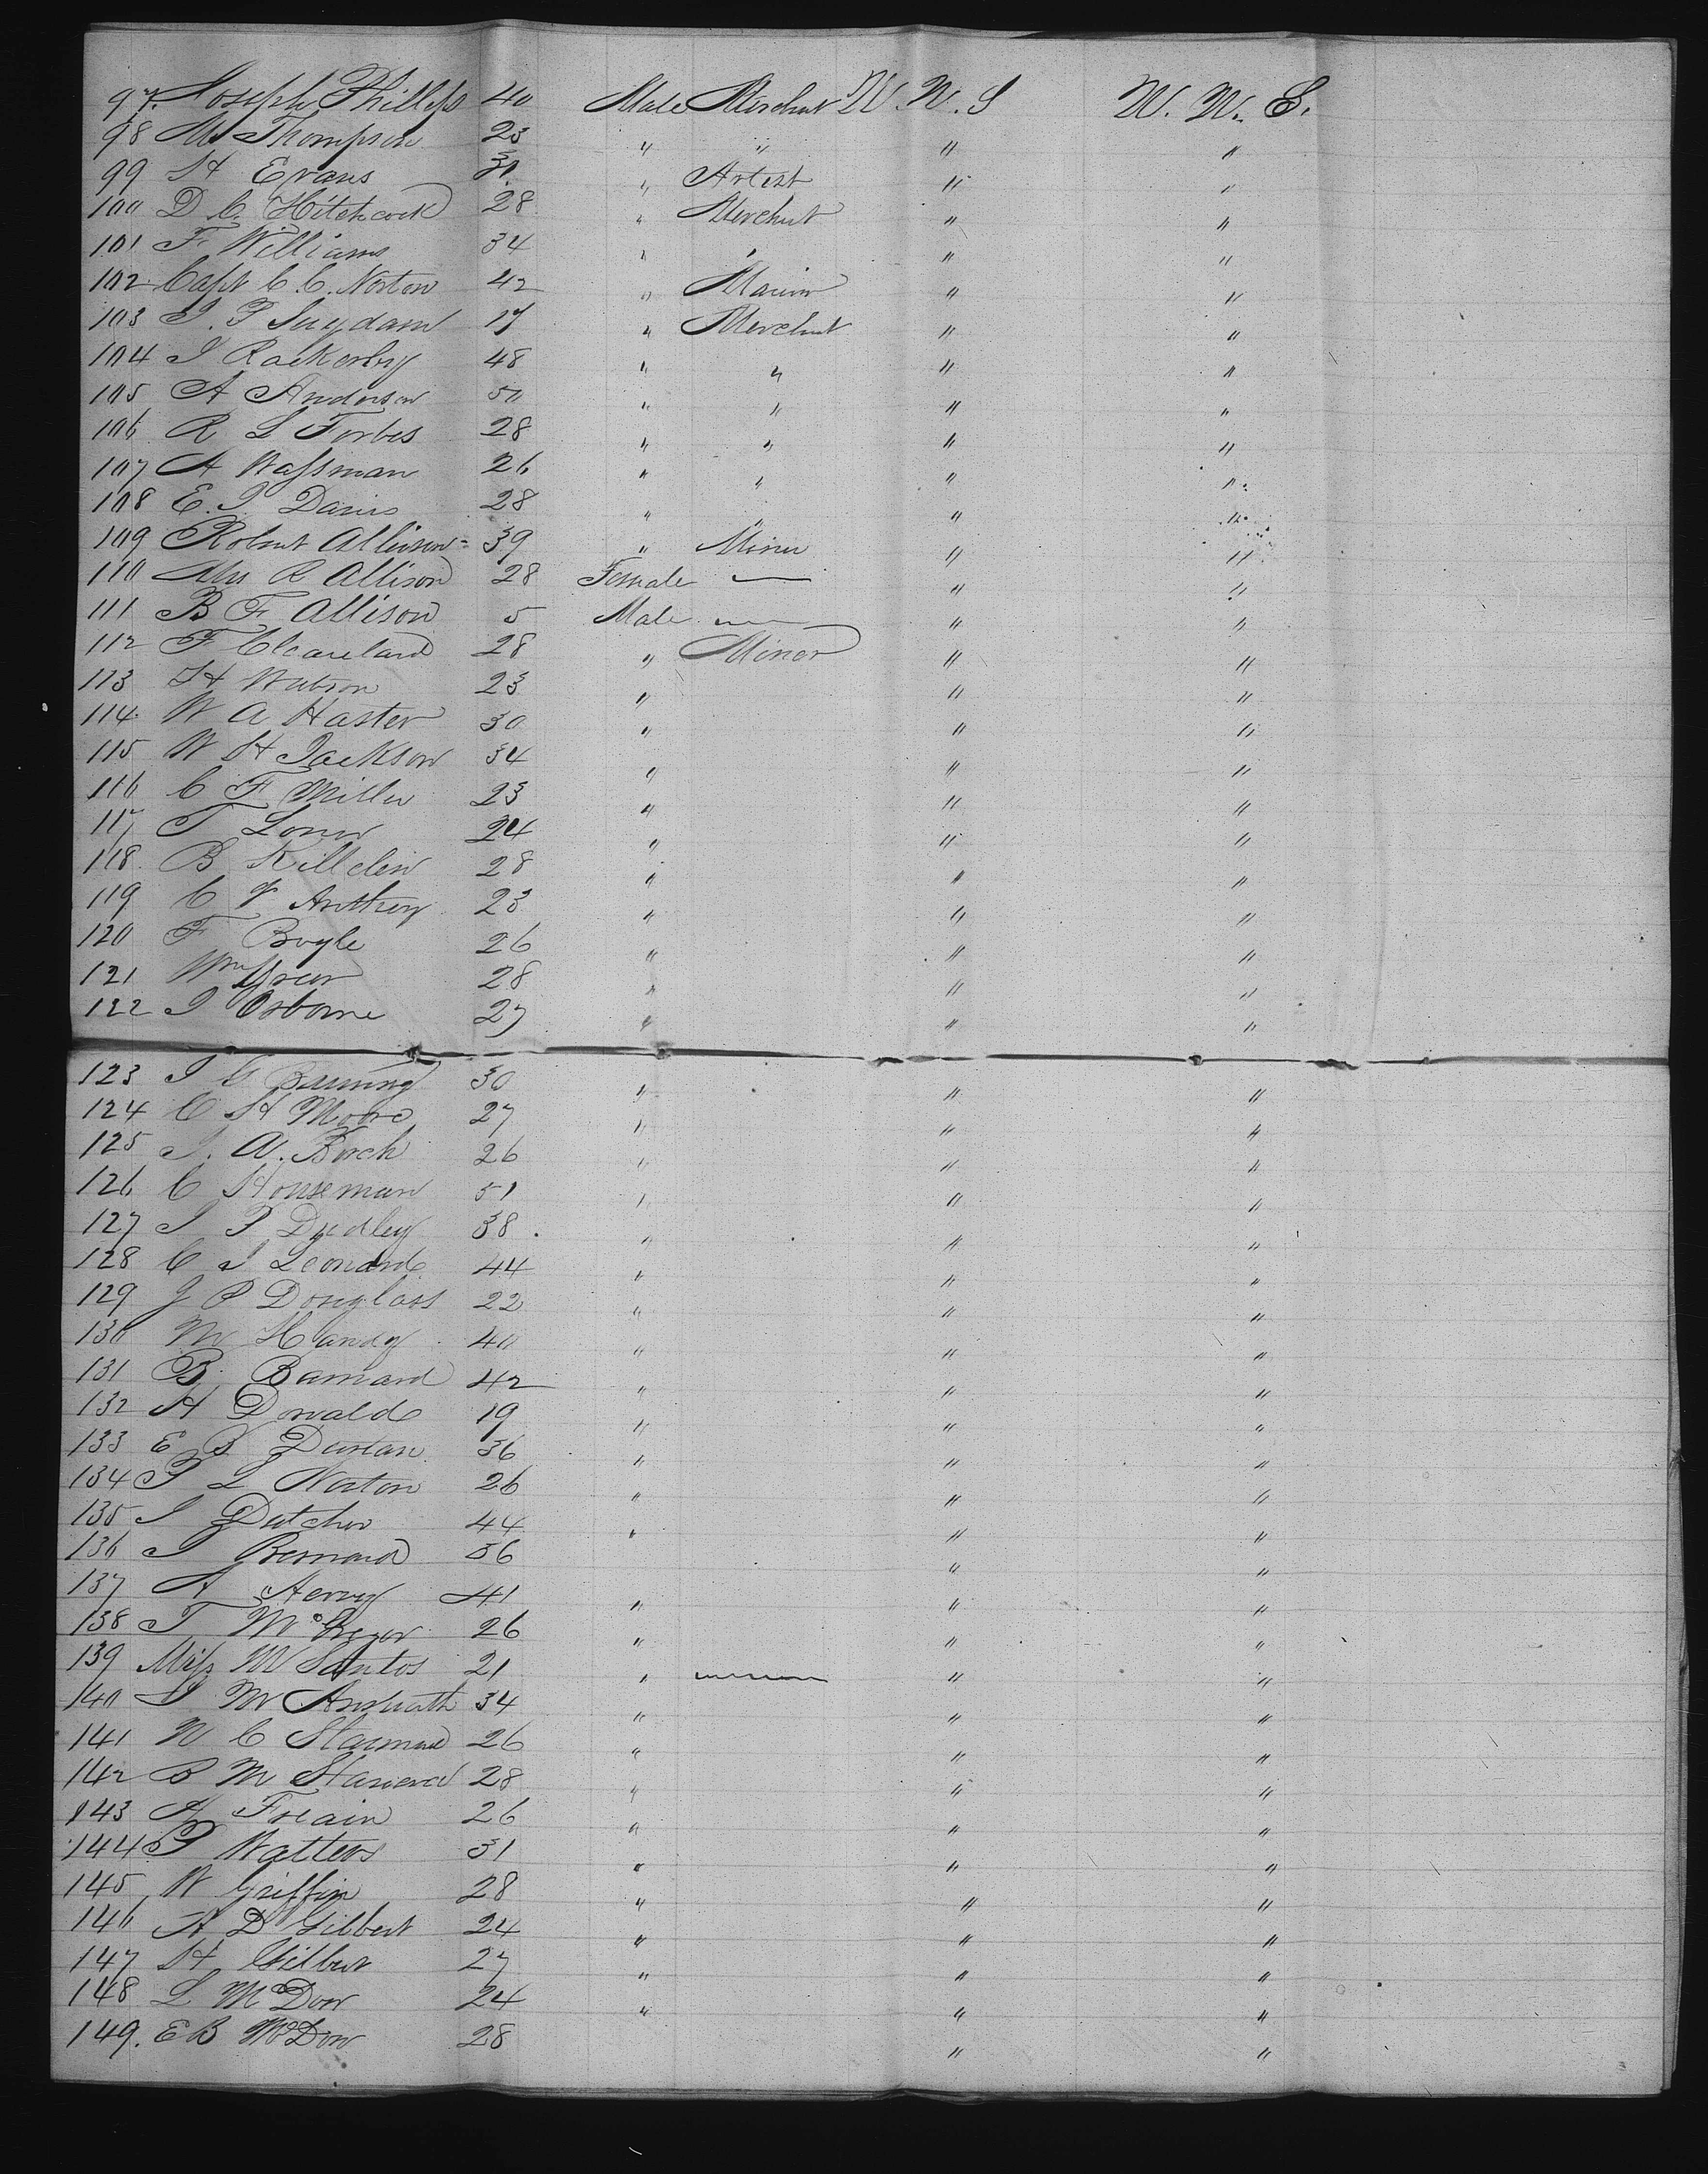 97. Joseph Phillips 40 Male Merchant U. N. S U. N. S.
98 M Thompson 23 " " " "
99 H Evans 30 " Artist " "
100 D C. Hitchcock 28 " Merchant " "
101 F Williams 34 " " " "
102 Capt C. C. Norton 42 " Marinr " "
103 J. P Suydam 17 " Merchant " "
104 J Rackerby 48 " " " "
105 A Anderson 50 " " " "
106 R L Forbes 28 " " " "
107 A Wassman 26 " " " "
108 E. J. Davis 28 " " " "
109 Robert Allison 39 " Miner " "
110 Mrs R Allison 28 Female — " "
111 B F Allison 5 Male — " "
112 F Cleaveland 28 " Miner " "
113 H Watson 23 " " "
114. W A Haster 30 " " "
115 W H Jackson 34 " " "
116 C F Miller 23 " " "
117 T 24 " " "
118. B Killclin 28 " " "
119 C V Anthony 23 " " "
120 F Boyle 26 " " "
121 Wm Greer 28 " " "
122 J Osborne 27 " " "
123 J C 30 " " "
124 C H Moore 27 " " "
125 J. A. Birch 26 " " "
126 C Houseman 51 " " "
127 J P Dudley 38. " " "
128 C J Leonard 44 " " "
129 J P Douglass 22 " " "
130 M Handy 40 " " "
131 B. Barnard 42 " " "
132 H Donald 19 " " "
133 E S Durfan 36 " " "
134 P L Norton 26 " " "
135 J Dutcher 44 " " "
136 J Bernard 36 " "
137 A Hervey 41 " " "
138 T McGregor 26 " " "
139 Miss M Santos 21 " — " "
140 J M 34 " " "
141 N C 26 " " "
142 B M 28 " " "
143 A Freain 26 " " "
144 P Watters 31 " " "
145 W Griffin 28 " " "
146 A D Gilbert 24 " " "
147 H Gilbert 27 " " "
148 L McDow 24 " " "
149. E B McDow 28 " "